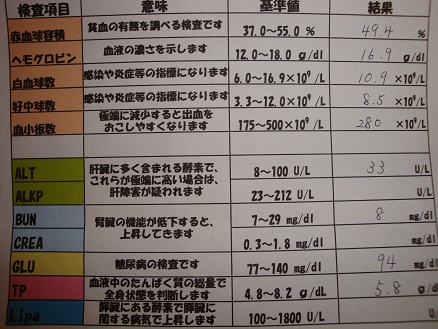 検査項目 意味 基準値 結果
赤血球容積 貧血の有無を調べる検査です 37.0～55.0 % 49.4 %
ヘモグロビン 血液の濃さを示します 12.0～18.0 g/dl 16.9 g/dl
白血球数 感染や炎症等の指標になります 6.0～16.9×10⁹/L 10.9 ×10⁹/L
好中球数 感染や炎症等の指標になります 3.3～12.0×10⁹/L 8.5 ×10⁹/L
血小板数 極端に減少すると出血を 175～500×10⁹/L 280 ×10⁹/L
おこしやすくなります
ALT 肝臓に多く含まれる酵素で、 8～100 U/L 33 U/L
これらが極端に高い場合は、
ALKP 肝障害が疑われます 23～212 U/L U/L
BUN 腎臓の機能が低下すると、 7～29 mg/dl 8 mg/dl
CREA 上昇してきます 0.3～1.8 mg/dl mg/dl
GLU 糖尿病の検査です 77～140 mg/dl 94 mg/dl
TP 血液中のたんぱく質の総量で 4.8～8.2 g/dL 5.8 g/dl
全身状態を判断します
Lipa 膵臓にある酵素で膵臓に 100～1800 U/L U/L
関する病気で上昇します